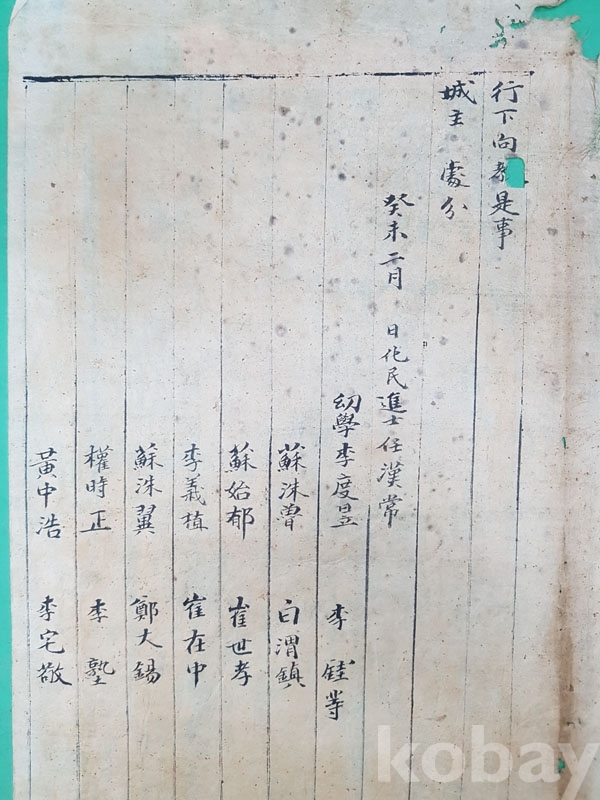 行下向教是事
城主 處分
癸未二月 日化民進士任漢常
幼學李度昱 李 등
蘇洙曾 白渭鎮
蘇始郁 崔世孝
李義植 崔在中
蘇洙翼 鄭大錫
權時正 李 塾
黃中浩 李宅敬
kobay